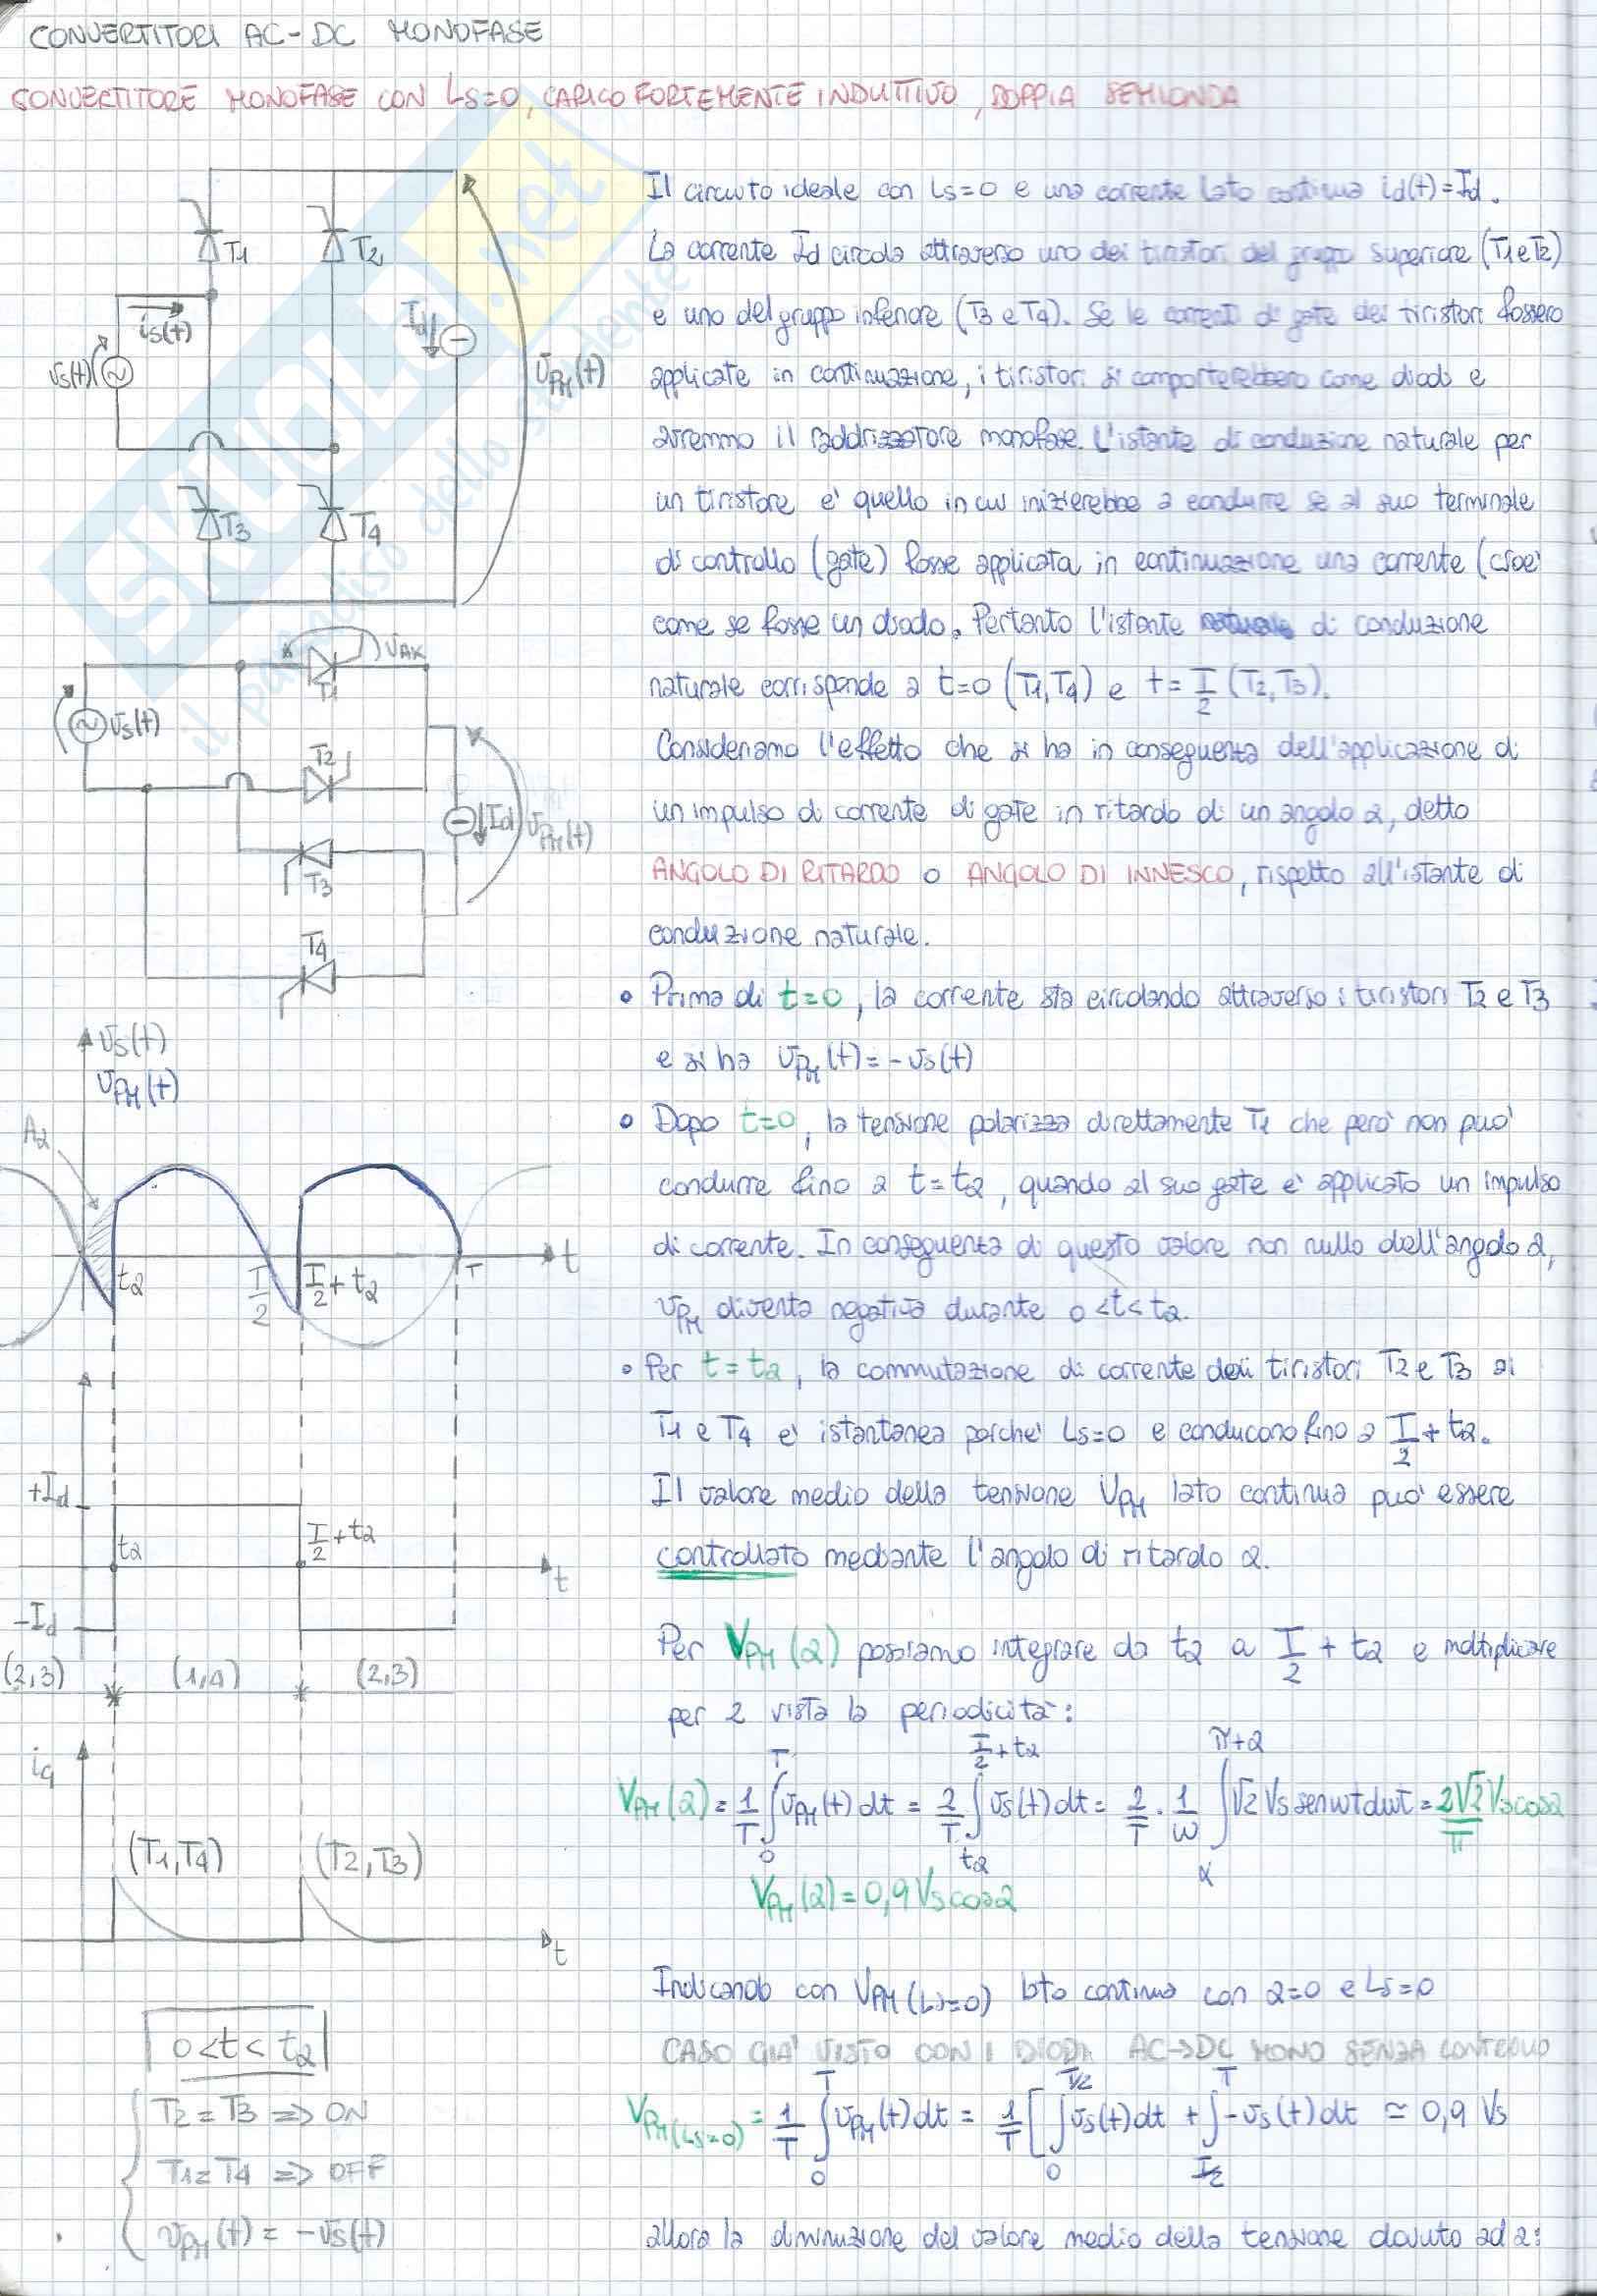 CONVERTITORI AC-DC MONOFASE
CONVERTITORE MONOFASE CON Ls=0, CARICO FORTEMENTE INDUTTIVO, DOPPIA SEMIONDA
SKUOLA.net
il paradiso dello studente
T1
T2
is(t)
vs(t)
Id
vPM(t)
T3
T4
vAK
T1
vs(t)
T2
Id
vPM(t)
T3
T4
vs(t)
vPM(t)
Aα
tα
T/2
T/2 + tα
T
t
+Id
tα
T/2 + tα
t
-Id
(2,3)
(1,4)
(2,3)
ig
(T1,T4)
(T2,T3)
t
0<t<tα
T2=T3 => ON
T1=T4 => OFF
vPM(t) = -vs(t)
Il circuito ideale con Ls=0 e una corrente lato continua id(t)=Id.
La corrente Id circola attraverso uno dei tiristori del gruppo superiore (T1 e T2)
e uno del gruppo inferiore (T3 e T4). Se le correnti di gate dei tiristori fossero
applicate in continuazione, i tiristori si comporterebbero come diodi e
avremmo il raddrizzatore monofase. L'istante di conduzione naturale per
un tiristore e' quello in cui inizierebbe a condurre se al suo terminale
di controllo (gate) fosse applicata in continuazione una corrente (cioe'
come se fosse un diodo. Pertanto l'istante di conduzione
naturale corrisponde a t=0 (T1,T4) e t=T/2 (T2,T3).
Consideriamo l'effetto che si ha in conseguenza dell'applicazione di
un impulso di corrente di gate in ritardo di un angolo α, detto
ANGOLO DI RITARDO o ANGOLO DI INNESCO, rispetto all'istante di
conduzione naturale.
• Prima di t=0, la corrente sta circolando attraverso i tiristori T2 e T3
e si ha vPM(t)=-vs(t)
• Dopo t=0, la tensione polarizza direttamente T1 che però non può
condurre fino a t=tα, quando al suo gate e' applicato un impulso
di corrente. In conseguenza di questo valore non nullo dell'angolo α,
vPM diventa negativa durante 0<t<tα.
• Per t=tα, la commutazione di corrente dai tiristori T2 e T3 ai
T1 e T4 e' istantanea poiche' Ls=0 e conducono fino a T/2 + tα.
Il valore medio della tensione VPM lato continua può essere
controllato mediante l'angolo di ritardo α.
Per VPM(α) possiamo integrare da tα a T/2 + tα e moltiplicare
per 2 vista la periodicità:
VPM(α) = 1/T ∫₀ᵀ vPM(t)dt = 2/T ∫_tα^(T/2+tα) vs(t)dt = 2/T · 1/ω ∫_α^(π+α) √2 Vs senωt dωt = 2√2/π Vs cosα
VPM(α) = 0,9 Vs cosα
Indicando con VPM(Ls=0) lato continua con α=0 e Ls=0
CASO GIA' VISTO CON I DIODI AC→DC MONO SENZA CONTROLLO
VPM(Ls=0) = 1/T ∫₀ᵀ vPM(t)dt = 1/T [∫₀^(T/2) vs(t)dt + ∫_(T/2)^T -vs(t)dt ≃ 0,9 Vs
allora la diminuzione del valore medio della tensione dovuto ad α: